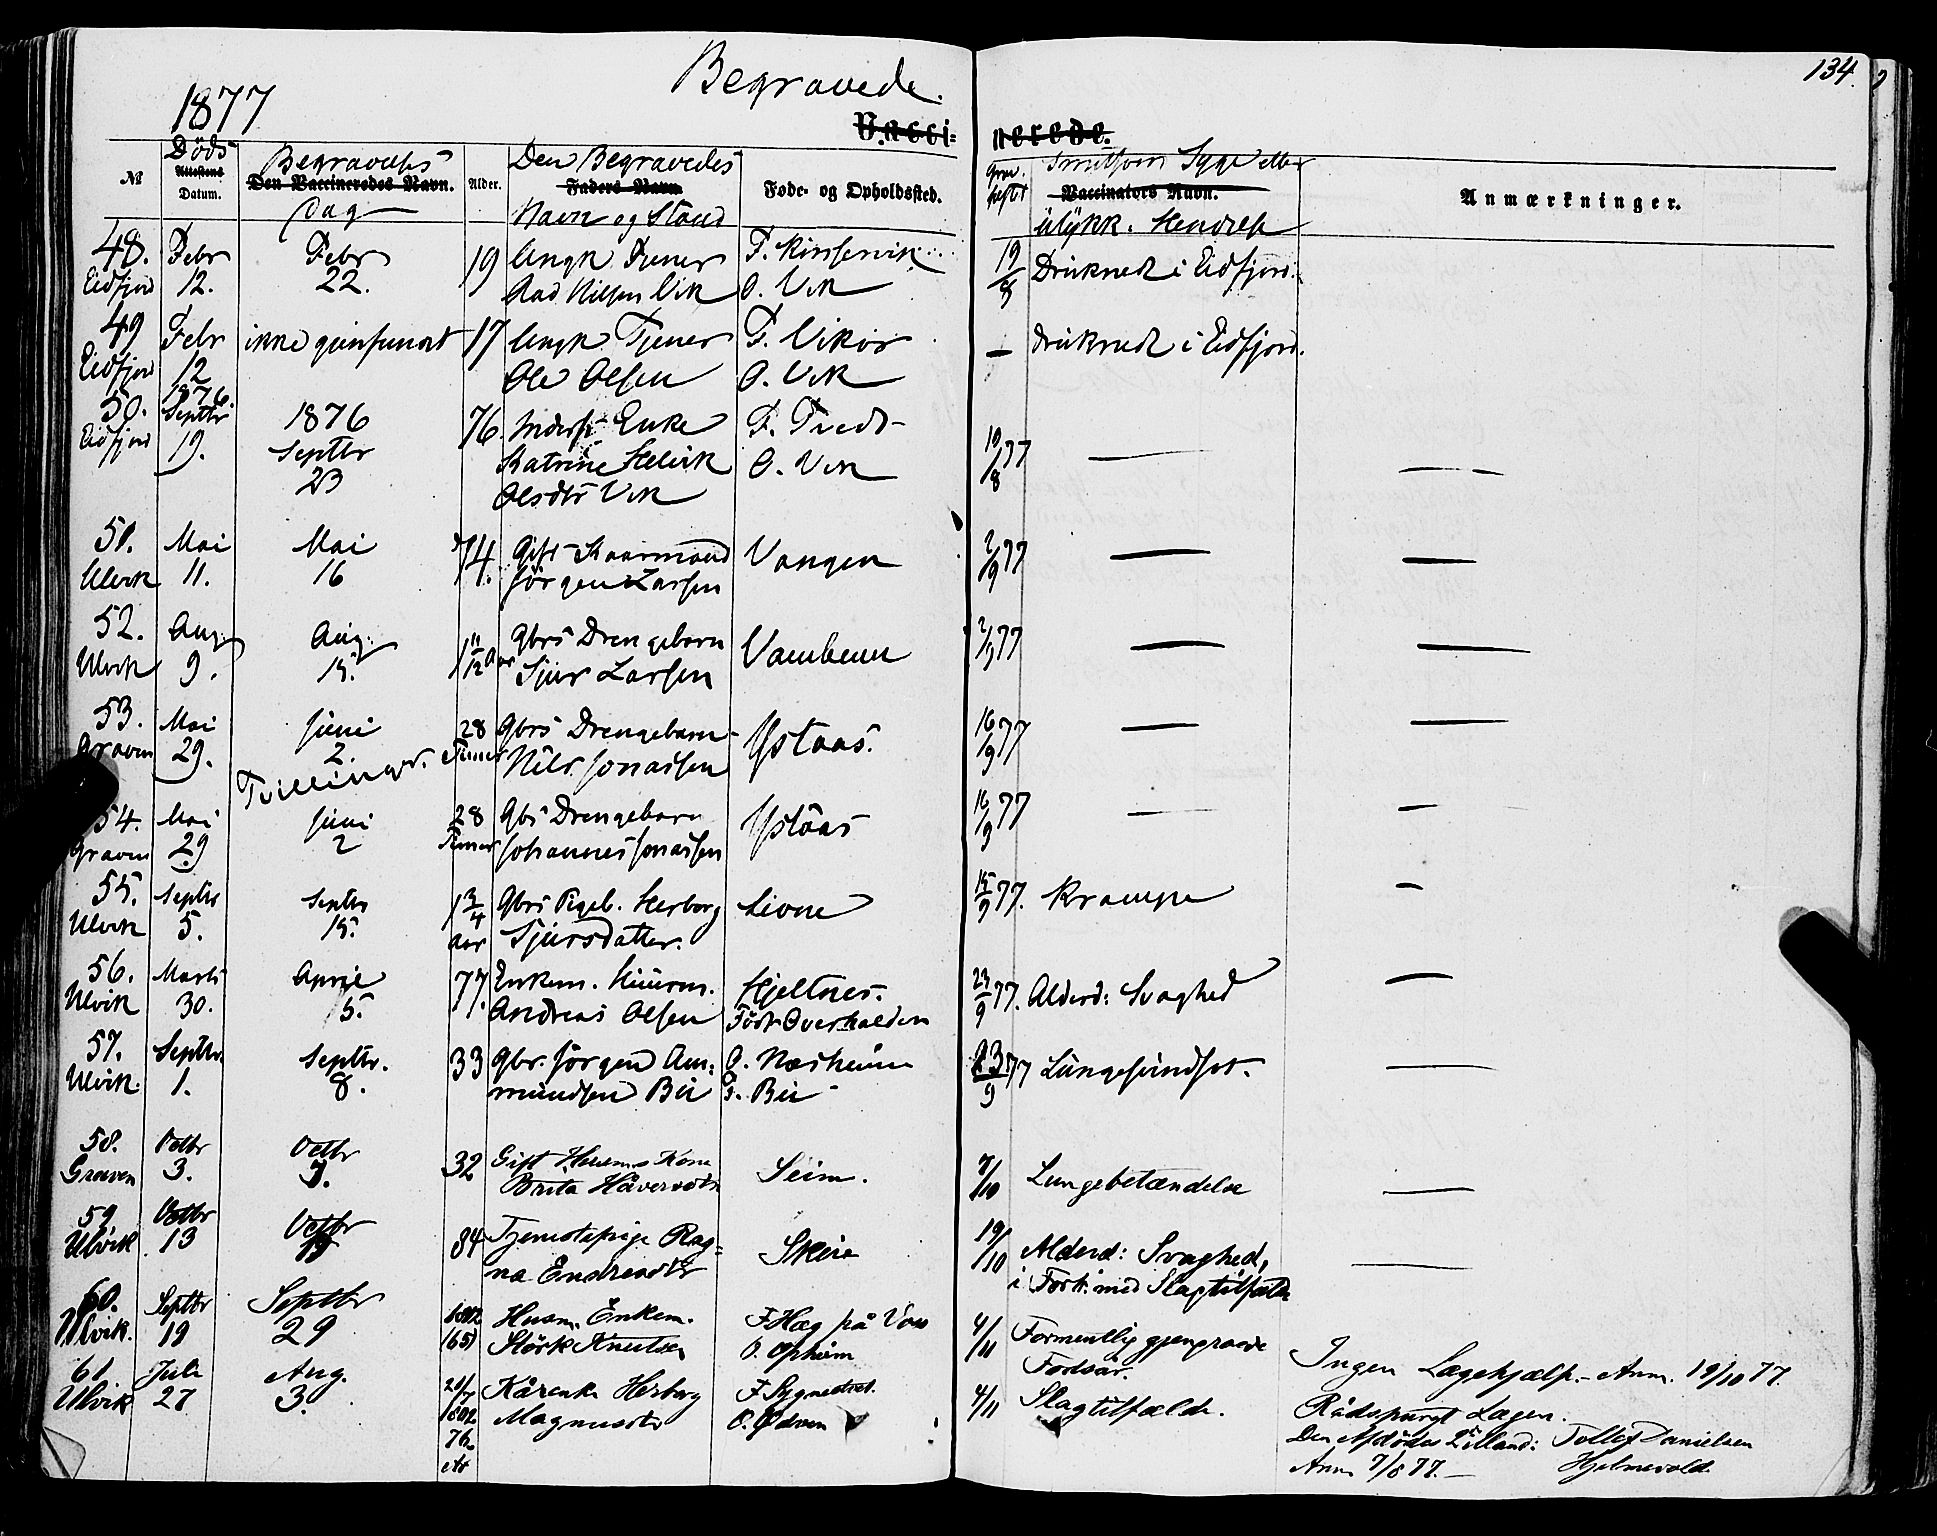 134.
1877
Begravede.
Vacci- nerede.
№
Døds
Attestens
Datum.
Begravelses
Den Vaccineredes Navn.
Dag
Alder.
Den Begravedes
Faders Navn
Navn og Stand
Føde- og Opholdssted.
Smitsom Syge eller
Vaccinators Navn.
Ulykk. Hendelse
Anmærkninger.
48. Febr Febr 19 Ungk. Tjener F. Kinservik 19 Druknede i Eidfjord.
Eidfjord 12. 22. Aad Nilsen Vik O. Vik
49 Febr ikke gjenfundet 17 Ungk Tjener F. Vikør — druknede i Eidfjord.
Eidfjord 12 Ole Olsen O. Vik
50. 1876. Septbr 1876 76. Inderst Enke
Eidfjord 19. Septbr Katrine O. Vik 19/8 77 — —
23 Olsdtr Vik
51. Mai Mai 74. Gift Kaarmand Vangen 2/9 77 — —
Ulvik 11. 16 Jörgen Larsen
52. Aug. Aug. 1 11/12 Aar Gbrs Drengebarn 2/9 77 — —
Ulvik 9. 15. Sjur Larsen
53. Mai Juni 28 Gbrs Drengebarn Ystaas. 16/9 77 — —
Graven 29. 2. Timer Nils Jonassen
Tvillinger.
54. Mai Juni 28 Gbrs Drengebarn Ystaas 16/9 77 — —
Graven 29 2 Timer Johannes Jonassen
55. Septbr Septbr 1 3/4 Gbrs Pigeb. Herborg Lione 15/9 77. Krampe —
Ulvik 5. 15. Aar Sjursdatter.
56. Marts April 77. Enkem. Huusm. Hjeltnes. 23/9 77. Alderd: Svaghed —
Ulvik 30. 5. Andreas Olsen Född Overhalden
57. Septbr. Septbr. 33 Gbr. Jörgen Am- O. Næsheim 23/9 77 Lungesvindsot. —
Ulvik. 1. 8. mundsen Bu F. Bu
58. Octbr Octbr 32 Gift Huusm. Kone Seim. 7/10 Lungebetændelse —
Graven 3. Brita Håversdtr
59 Octbr Octbr 84 Tjenestepige Rag- Skeie 19/10 Alderd: Svaghed, —
Ulvik 13 19 na Endresdtr i Forb. med Slagtilfælde
60. Septbr Septbr Husm. Enkem. F Hæg på Voss 4/11 Formentlig gjengroede
Ulvik. 19 29 Störk Knutsen O. Opheim Fodsår. Ingen Lægehjælp. - Anm. 19/10 77.
61. Juli Aug. Kårenke Herborg 4/11 Slagtilfælde. Rådspurgt Lægen.
Ulvik 27 3. 1802 Magnusdtr O. Den Afdödes
76 Anm 7/8 77. — Tollef Danielsen
Hjelmevold.